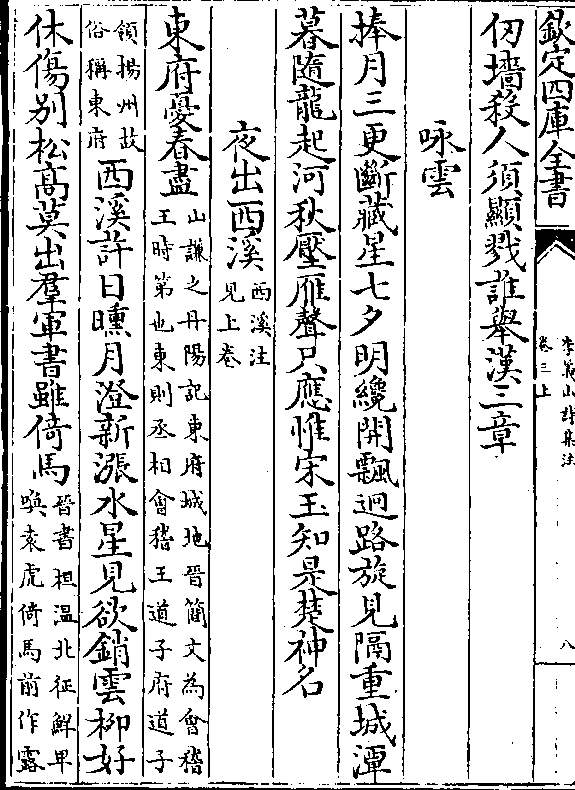 欽定四庫全書
李義山詩集注
卷三上
八
仞墻殺人須顯戮誰舉漢三章
咏雲
捧月三更斷藏星七夕明纔開飄迥路旋見隔重城潭
暮隨龍起河秋壓雁聲只應惟宋玉知是楚神名
夜出西溪
西溪注
見上卷
東府憂春盡
山謙之丹陽記東府城地晉簡文為會稽
王時第也東則丞相會稽王道子府道子
領揚州故
俗稱東府
西溪許日曛月澄新漲水星見欲銷雲柳好
休傷别松髙莫出羣軍書雖倚馬
晉書桓温北征鮮卑
喚袁虎倚馬前作露